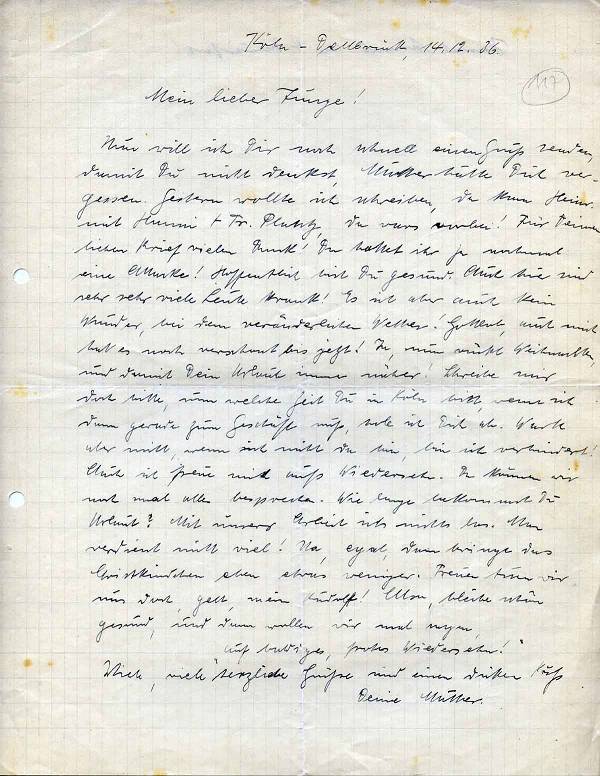 Köln - Dellbrück, 14.12.36.
117
Mein lieber Junge!
Nun will ich Dir noch schnell einen Gruß senden,
damit Du nicht denkst, Mutter hätte Dich ver-
gessen. Gestern wollte ich schreiben, da kam
mit Hanni + Fr. da wars vorbei! Für Deinen
lieben Brief vielen Dank! Du hattest ja nochmal
eine Marke! Hoffentlich bist Du gesund. Auch hier sind
sehr sehr viele Leute krank! Es ist aber auch kein
Wunder, bei dem veränderlichen Wetter! Gottlob, auch mich
hat es noch verschont bis jetzt! Ja, nun rückt Weihnachten,
und damit Dein Urlaub immer näher! Schreibe mir
doch bitte, um welche Zeit Du in Köln bist, wenn ich
dann gerade zum Geschäft muß, hole ich Dich ab. Warte
aber nicht, wenn ich nicht da bin, bin ich verhindert!
Auch ich freue mich aufs Wiedersehn. Da können wir
noch mal alles besprechen. Wie lange bekommst Du
Urlaub? Mit unserer Arbeit ists nichts los. Man
verdient nicht viel! Na, egal, dann bringt das
Christkindchen eben etwas weniger. Freuen tun wir
uns doch, gelt, mein Rudolf! Also, bleibe schön
gesund, und dann wollen wir mal sagen,
auf baldiges, frohes Wiedersehn!"
Viele, viele herzliche Grüße und einen dicken Kuß
Deine Mutter.